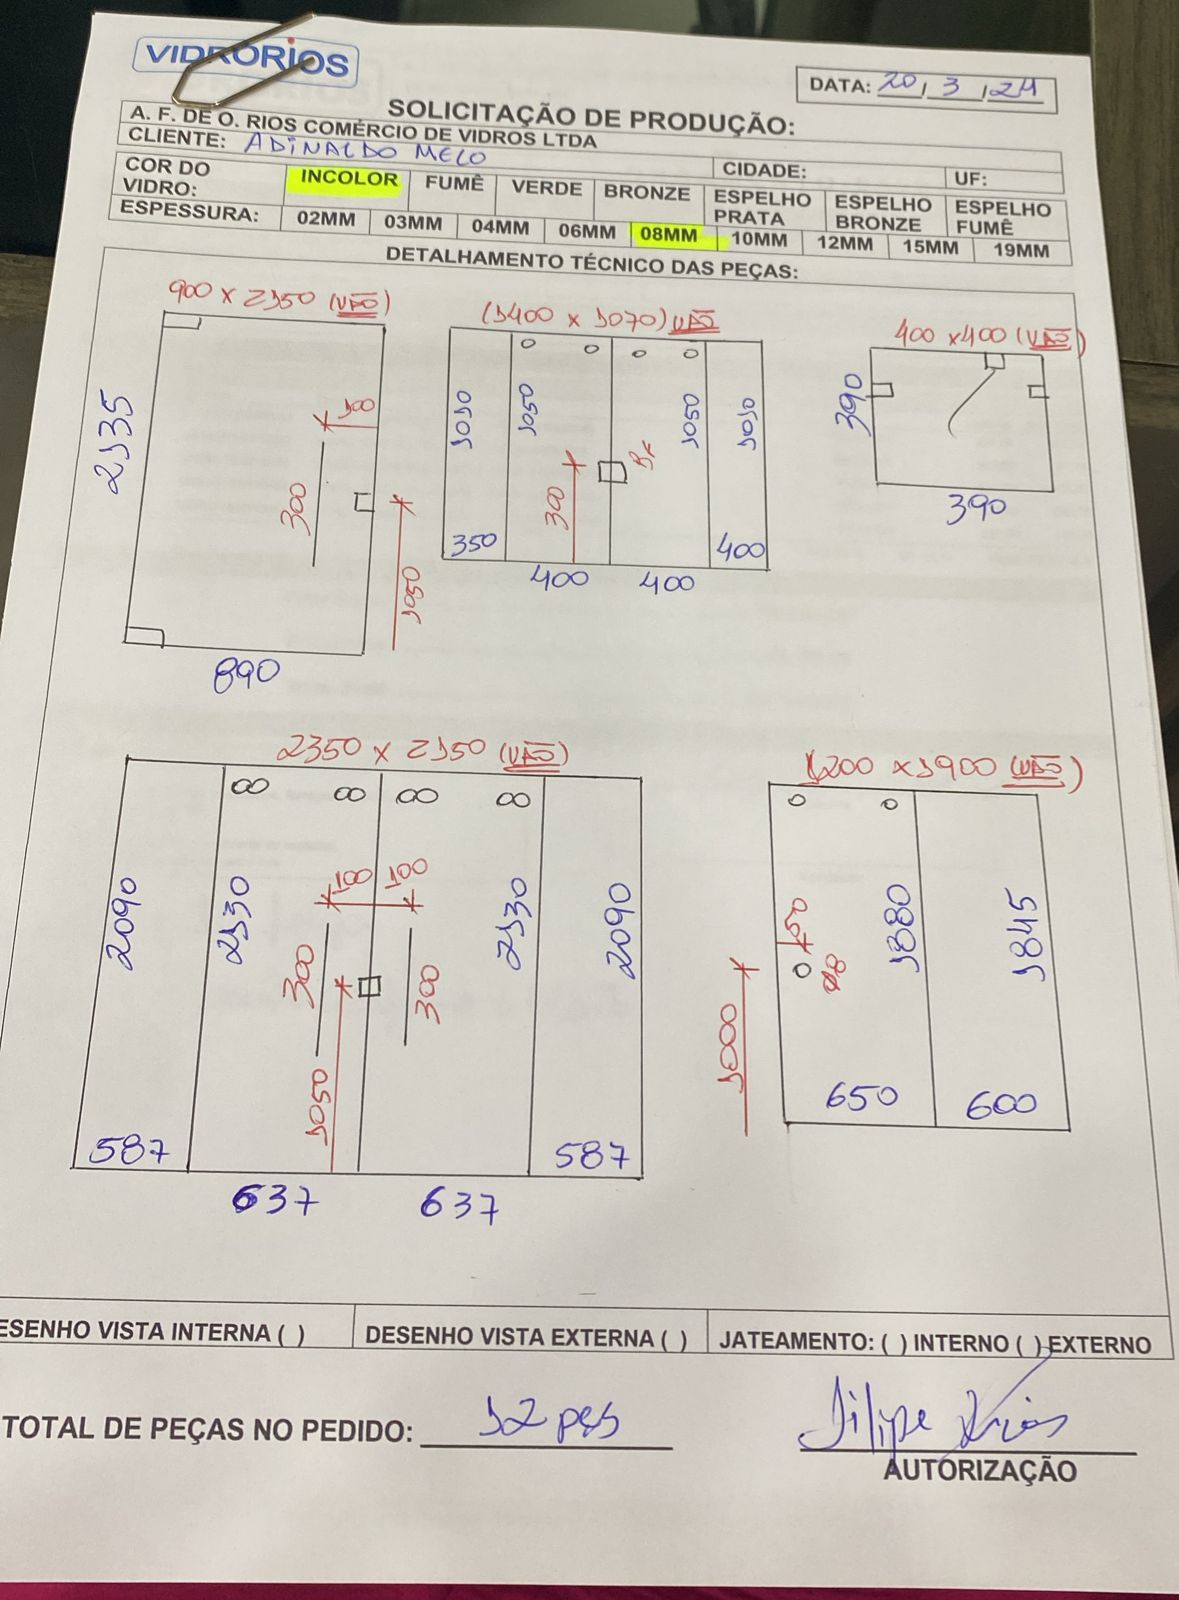 VIDRORIOS
DATA: 20/3/24
SOLICITAÇÃO DE PRODUÇÃO:
A. F. DE O. RIOS COMÉRCIO DE VIDROS LTDA
CLIENTE: ADINALDO MELO
CIDADE:
UF:
COR DO VIDRO: INCOLOR FUMÊ VERDE BRONZE ESPELHO PRATA ESPELHO BRONZE ESPELHO FUMÊ
ESPESSURA: 02MM 03MM 04MM 06MM 08MM 10MM 12MM 15MM 19MM
DETALHAMENTO TÉCNICO DAS PEÇAS:
900 x 2150 (VÃO)
2135
100
300
1050
890
(1400 x 1070) VÃO
1010
1050
1050
1010
300
350
400
400
400
400 x 400 (VÃO)
390
390
2350 x 2150 (VÃO)
2090
2130
100
100
2130
2090
300
300
1050
587
587
637
637
1200 x 1900 (VÃO)
50
1880
1845
1000
650
600
ESENHO VISTA INTERNA ( )
DESENHO VISTA EXTERNA ( )
JATEAMENTO: ( ) INTERNO ( ) EXTERNO
TOTAL DE PEÇAS NO PEDIDO: 12 pçs
Filipe Rios
AUTORIZAÇÃO